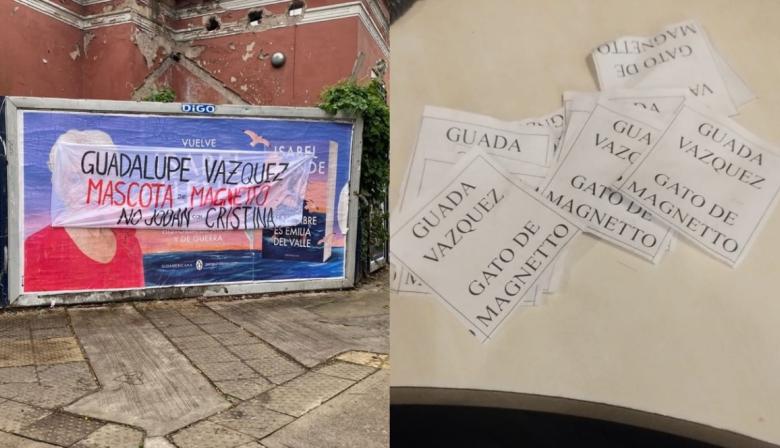 DIGO
VUELVE
ISABEL
GUADALUPE VAZQUEZ
MASCOTA DE MAGNETTO
NO JODAN CON CRISTINA
Y DE GUERRA
ES EMILIA
DEL VALLE
SUDAMERICANA
GATO DE
MAGNETTO
GUADA
GUADA
VAZQUEZ
GATO DE
MAGNETTO
GUADA
GATO DE
MAGNETTO
GUADA
VAZQUEZ
GATO DE
MAGNETTO